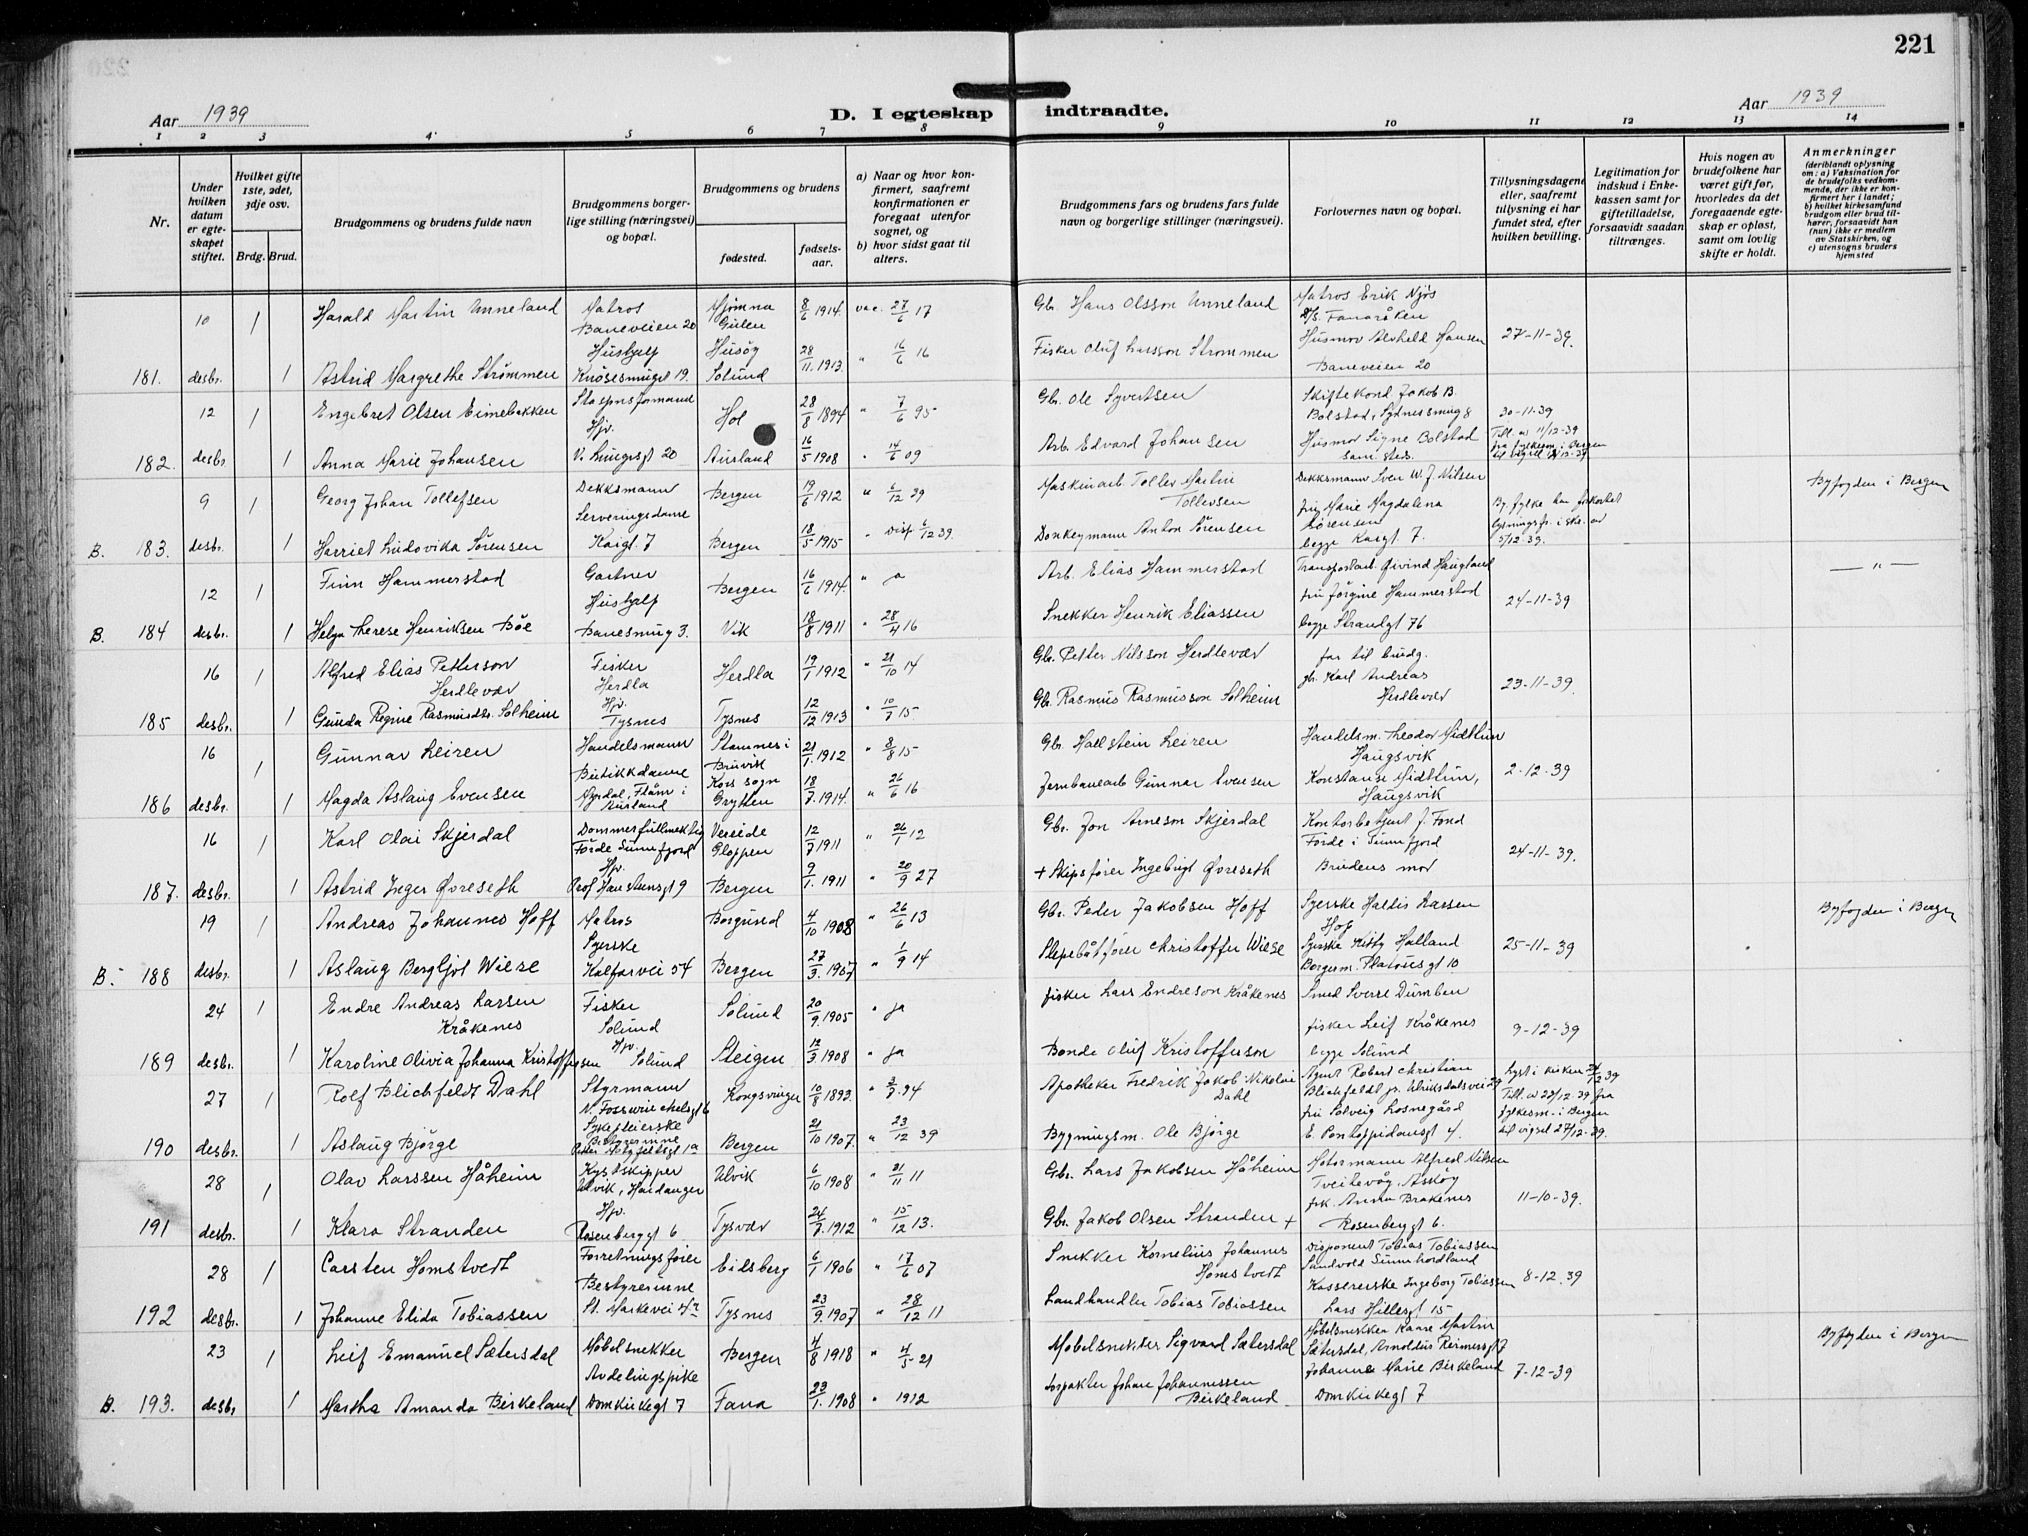 221
Aar 1939
D. I egteskap indtraadte.
Aar 1939
1 2 3 4 5 6 7 8 9 10 11 12 13 14
Nr.
Under hvilken datum er egte-skapet stiftet.
Hvilket gifte 1ste, 2det, 3dje osv.
Brdg. Brud.
Brudgommens og brudens fulde navn
Brudgommens borger-lige stilling (næringsvei) og bopæl.
Brudgommens og brudens
fødested.
fødsels-aar.
a) Naar og hvor kon-firmert, saafremt konfirmationen er foregaat utenfor sognet, og
b) hvor sidst gaat til alters.
Brudgommens fars og brudens fars fulde navn og borgerlige stillinger (næringsvei).
Forlovernes navn og bopæl.
Tillysningsdagene eller, saafremt tillysning ei har fundet sted, efter hvilken bevilling.
Legitimation for indskud i Enke-kassen samt for giftetilladelse, forsaavidt saadan tiltrænges.
Hvis nogen av brudefolkene har været gift før, hvorledes da det foregaaende egte-skap er opløst, samt om lovlig skifte er holdt.
Anmerkninger
(deriblandt oplysning om: a) Vaksination for de brudefolks vedkom-mende, der ikke er kon-firmert her i landet; b) hvilket kirkesamfund brudgom eller brud til-hører, forsaavidt han (hun) ikke er medlem av Statskirken, og c) utensogns bruders hjemsted
10 1 Harald Martin Anneland Matros Baneveien 20 Mjømna Gulen 8/6 1914 vac. 27/6 17 Gb. Hans Olsson Anneland Matros Erik Njøs D/S. Fanaråken
181. desbr. 1 Astrid Margrethe Strømmen Hushjelp Knøsesmuget 19. Husøy Solund 28/11. 1913. " 16/6 16 Fisker Oluf Larsson Strømmen Husmor Alvhild Hansen Baneveien 20 27-11-39.
12 1 Engebret Olsen Eimebakken Stasjonsformand Hol 28/8 1894 " 7/6 95 Gb. Ole Syvertsen Skiftekond Jakob B. Bolstad, Sydnessmug 8 30-11-39
182. desbr 1 Anna Marie Johansen Hjv. V. Muregt 20 Aurland 16/5 1908 " 14/6 09 Arb. Edvard Johansen Husmor Signe Bolstad sam. steds. Till. av 11/12-39 fra fylkesm. i Bergen til vigsel 12/12-39
9 1 Georg Johan Tollefsen Dekksmann Bergen 19/6 1912 " 6/12 39 Maskinarb Tollev Martin Tollevsen Dekksmann Sven W. J. Nilsen Byfogden i Bergen
B. 183. desbr. 1 Harriet Ludovika Sørensen Serveringsdame Kaigt. 7 Bergen 18/5 1915 " Disp 6/12 39. Donkeymann Anton Sørensen frøy Marie Magdalena Sørensen begge Kaigt 7. 5/12.39.
12 1 Finn Hammerstad Gartner Bergen 16/6 1914. " a Arb. Elias Hammerstad Transportarb. Øivind Haugland — " —
B. 184 desbr. 1 Helga Therese Henriksen Bøe Hushjelp Banesmug 3. Vik 18/8 1911 " 28/4 16 Snekker Henrik Eliassen fru Jørgine Hammerstad begge Strandgt 76 24-11-39
16 1 Alfred Elias Petterson Herdlevær Fisker Herdla Herdla 19/1 1912 " 21/10 14 Gb. Petter Nilsson Herdlevær far til brudg.
185 desbr. 1 Gunda Regine Rasmusdtr. Solheim Hjv. Tysnes Tysnes 12/12 1913 " 10/7 15 Gb. Rasmus Rasmusson Solheim gb. Karl Andreas Herdlevær 23-11-39.
16 1 Gunnar Leiren Handelsmann Stamnes i Bruvik 21/1. 1912 " 8/8 15 Gb. Hallstein Leiren Handelsm. Theodor Midttun Haugsvik
186 desbr. 1 Magda Aslaug Evensen Butikkdame Myrdal, Flåm i Aurland Kors sogn Grytten 18/7. 1914. " 26/6 16 Jernbanearb Gunnar Evensen Konstanse Midttun, Haugsvik 2-12-39
16 1 Karl Olai Skjerdal Dommerfullmektig Førde Sunnfjord Vereide Gloppen 12/7 1911 " 26/1 12 Gb. Jon Arneson Skjerdal Kontorbetjent J. Fond Førde i Sunnfjord
187. desbr. 1 Astrid Inger Øvreseth Hjv. Prof Hansteensgt 9 Bergen 9/1. 1911 " 20/9 27 + Skipsfører Ingebrigt Øvreseth Brudens mor 24-11-39.
19 1 Andreas Johannes Hoff Matros Borgund 4/10 1908 " 26/6 13 Gb. Peder Jakobsen Hoff Syerske Haldis Larsen Hop Byfogden i Bergen
B. 188 desbr. 1 Aslaug Bergljot Wiese Syerske Kalfarvei 54 Bergen 27/3. 1907 " 1/9 14 Slepebåtfører Christoffer Wiese Syerske Kitty Halland Borgerm. Platousgt 10 25-11-39
24 1 Endre Andreas Larsen Kråkenes Fisker Solund Solund 20/9. 1905 " ja fisker Lars Endreson Kråkenes Smed Sverre Dumben
189 desbr. 1 Karoline Olivia Johanna Kristoffersen Hjv. Solund Steigen 12/3 1908 " ja Bonde Oluf Kristofferson fisker Leif Kråkenes begge Solund 9-12-39
27 1 Rolf Blichfeldt Dahl Styrmann Kongsvinger 10/8 1893. " 94 Apotheker Fredrik Jakob Nikolai Dahl Agent Robert Christian Blichfeldt jr. Ulriksdalsvei 29 Lyst i kirken 24/12 39
190 desbr. 1 Aslaug Bjørge Sykepleierske Bestyrerinne Bergen 21/10 1907. " 23/12 39 Bygningsm. Ole Bjørge fru Solveig Losnegård E. Pontoppidansgt 4. Till. av 23/12.39 fra fylkesm. i Bergen til vigsel 27/12-39.
28 1 Olav Larssen Håheim Kystskipper Ulvik, Hardanger Ulvik 6/10 1908 " 21/11 11 Gb. Lars Jakobsen Håheim Motormann Alfred Nilsen Tveitevåg, Askøy
191 desbr. 1 Klara Stranden Hjv. Rosenberggt 6 Tysvær 24/7. 1912 " 15/12 13. Gb. Jakob Olsen Stranden + frk. Anna Brakenes Rosenberggt 6. 11-10-39.
28 1 Carsten Homstvedt Forretningsfører Eidsberg 6/1 1906 " 17/6 07 Snekker Kornelius Johannes Homstvedt Disponent Tobias Tobiassen Sandvold Sunnhordland
192 desbr. 1 Johanne Elida Tobiassen Bestyrerinne St. Markevei Tysnes 23/9. 1907 " 28/12 11 Landhandler Tobias Tobiassen Kassererske Ingeborg Tobiassen Lars Hillesgt 15 8-12.39
23 1 Leif Emanuel Sætersdal Møbelsnekker Bergen 4/8 1918 " 4/5-21 Møbelsnekker Sigvard Sætersdal Møbelsnekker Kaare Martin Sætersdal, Arnoldus Reimersgt 7 Byfogden i Bergen
B. 193. desbr 1 Martha Amanda Birkeland Avdelingspike Domkirkegt 7 Fana 23/1. 1908 " 1912 Forpakter Johan Johannessen Birkeland Johanne Marie Birkeland Domkirkegt 7 7-12-39